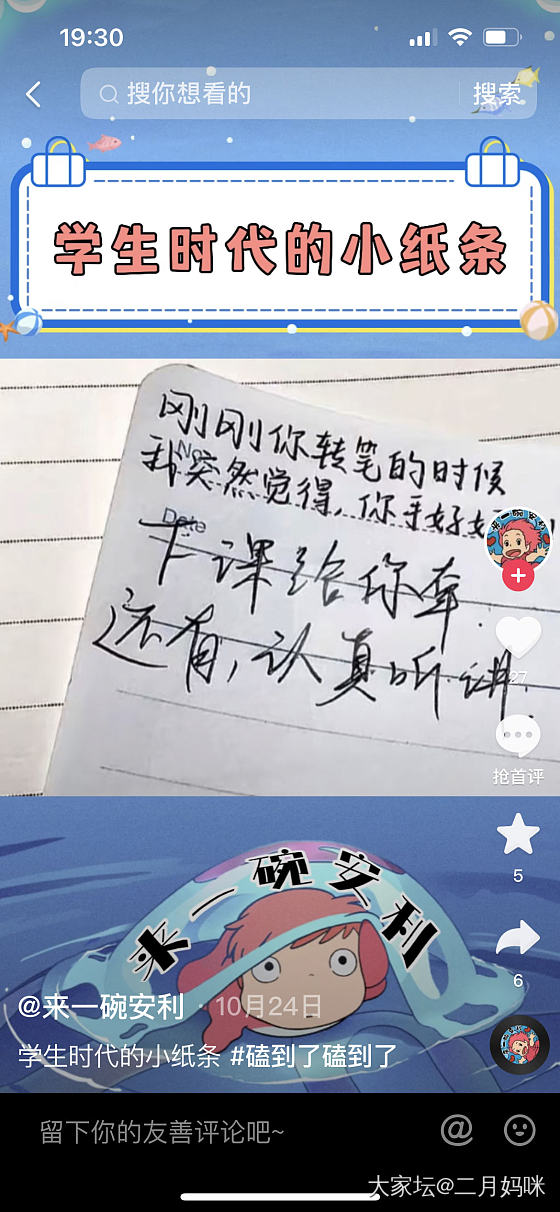 19:30
搜你想看的
搜索
学生时代的小纸条
刚刚你转笔的时候
No
我突然觉得,你手好好
Date
下课给你牵.
还有,认真听讲.
来一碗安利
27
抢首评
来一碗安利
5
6
@来一碗安利 · 10月24日
学生时代的小纸条 #磕到了磕到了
留下你的友善评论吧~
大家坛@二月妈咪